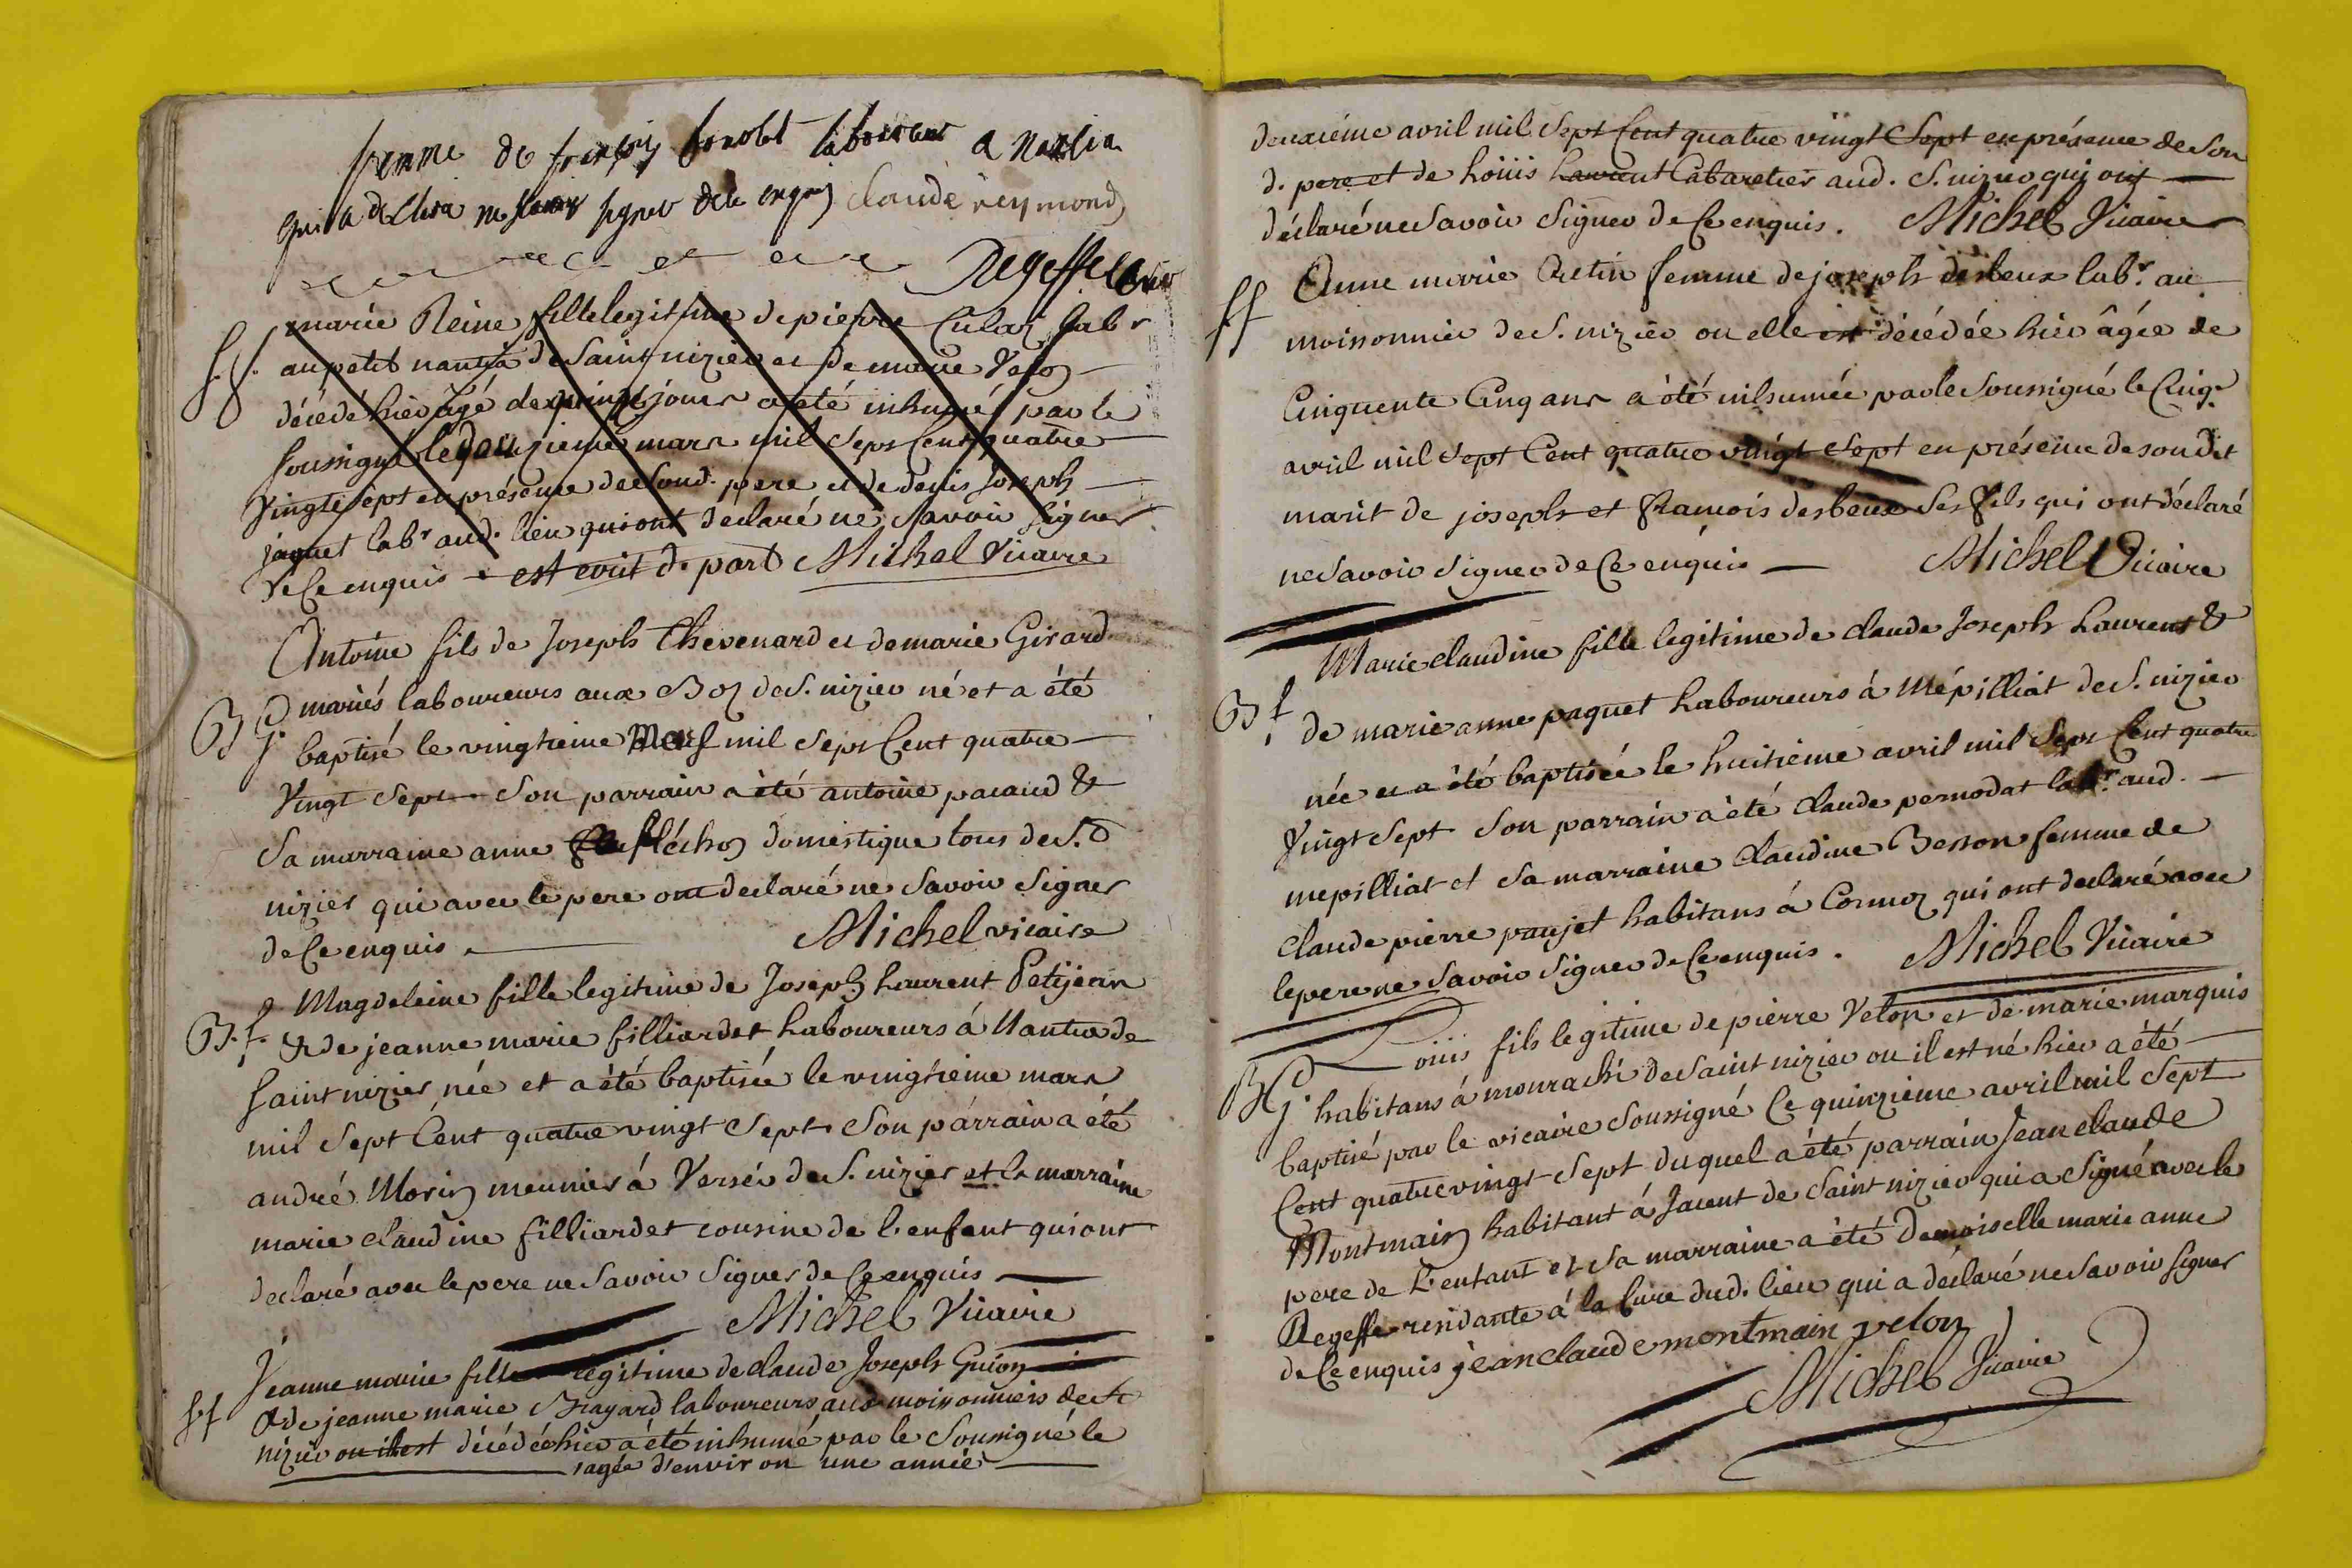 femme de françois bonobet laboureur a nantia
qui a declira ne savoir signer de ce enquis claude reymond
Regeffe Curé
marie Reine fille legitime de pierre Culaz lab.r
S.f. au petit nantia de Saint nizier et De marie Velon
décédé hier âgé de quinze jours a été inhumé par le
soussigné le douzieme mars mil Sept Cent quatre
Vingt Sept en présence de Sond. pere et de denis Joseph
jaquet lab.r aud. lieu qui ont déclaré ne Savoir Signer
de Ce enquis est ecrit d. part Michel Vicaire
Antoine fils de Joseph Thevenard et de marie Girard
B G. mariés laboureurs aux Boz de S. nizier né et a été
baptisé le vingtieme Mars mil Sept Cent quatre
Vingt Sept Son parrain a été antoine pacaud &
Sa marraine anne fléchon domestique tous de S.
nizier qui avec le pere ont declaré ne Savoir Signer
de Ce enquis. Michel vicaire
Magdeleine fille legitime de Joseph Laurent Petijean
B.f. & de jeanne marie filliardet Laboureurs à Nantia de
Saint nizier née et a été baptisée le vingtieme mars
mil Sept Cent quatre vingt Sept Son parrain a été
andré Morin meunier à Versée de S. nizier et la marraine
marie claudine filliardet cousine de l'enfant qui ont
declaré avec le pere ne Savoir Signer de Ce enquis
Michel Vicaire
Jeanne marie fille legitime de claude Joseph Guion
S.f & de jeanne marie Brayard laboureurs aux moissonniers de St
nizier ou il est décédée hier a été inhumé par le Soussigné le
agée d'environ une année
deuxiéme avril mil Sept Cent quatre viingt Sept en présence de Son
d. pere et de Loüis Laurent Cabaretier aud. S. nizier qui ont
déclaré ne Savoir Signer de Ce enquis. Michel Vicaire
S f Anne marie Cretin femme de joseph desbeux lab.r au
moissonnier de S. nizier ou elle est décédée hier âgée de
Cinquente Cinq ans a été inhumée par le Soussigné le Cinq.e
avril mil Sept Cent quatre vingt Sept en présence de son dit
marit de joseph et francois desbeux Ses fils qui ont déclaré
ne Savoir Signer de Ce enquis Michel Vicaire
Marie claudine fille legitime de claude Joseph Laurent &
B f. de marie anne paquet Laboureurs à Mépilliat de S. nizier
née et a été baptisée le huitieme avril mil Sept Cent quatre
Vingt Sept Son parrain a été claude pernodat lab.r aud.
mepilliat et Sa marraine claudine Besson femme de
claude pierre paujet habitans à Cormoz qui ont declaré avec
le pere ne Savoir Signer de Ce enquis. Michel Vicaire
Loüis fils legitime de pierre Velon et de marie marquis
B G. habitans à mourachi de Saint nizier ou il est né hier a été
baptisé par le vicaire Soussigné Ce quinzieme avril mil Sept
Cent quatre vingt Sept duquel a été parrain Jean claude
Montmain habitant à Jacent de Saint nizier qui a Signé avec le
pere de L'enfant et Sa marraine a été Demoiselle marie anne
Regeffe residante à la Cure dud. lieu qui a déclaré ne Savoir Signer
de Ce enquis jean claude montmain velon
Michel Vicaire